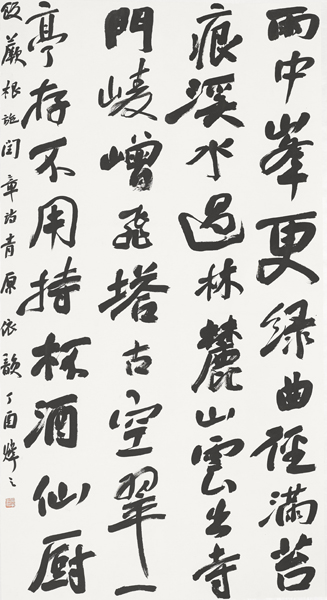 雨中峯更绿曲径满苔
痕溪水過林麓山雲出寺
門崚嶒飛塔古空翠一
亭存不用持杯酒仙厨
饭蕨根施闰章诗青原依韻丁酉